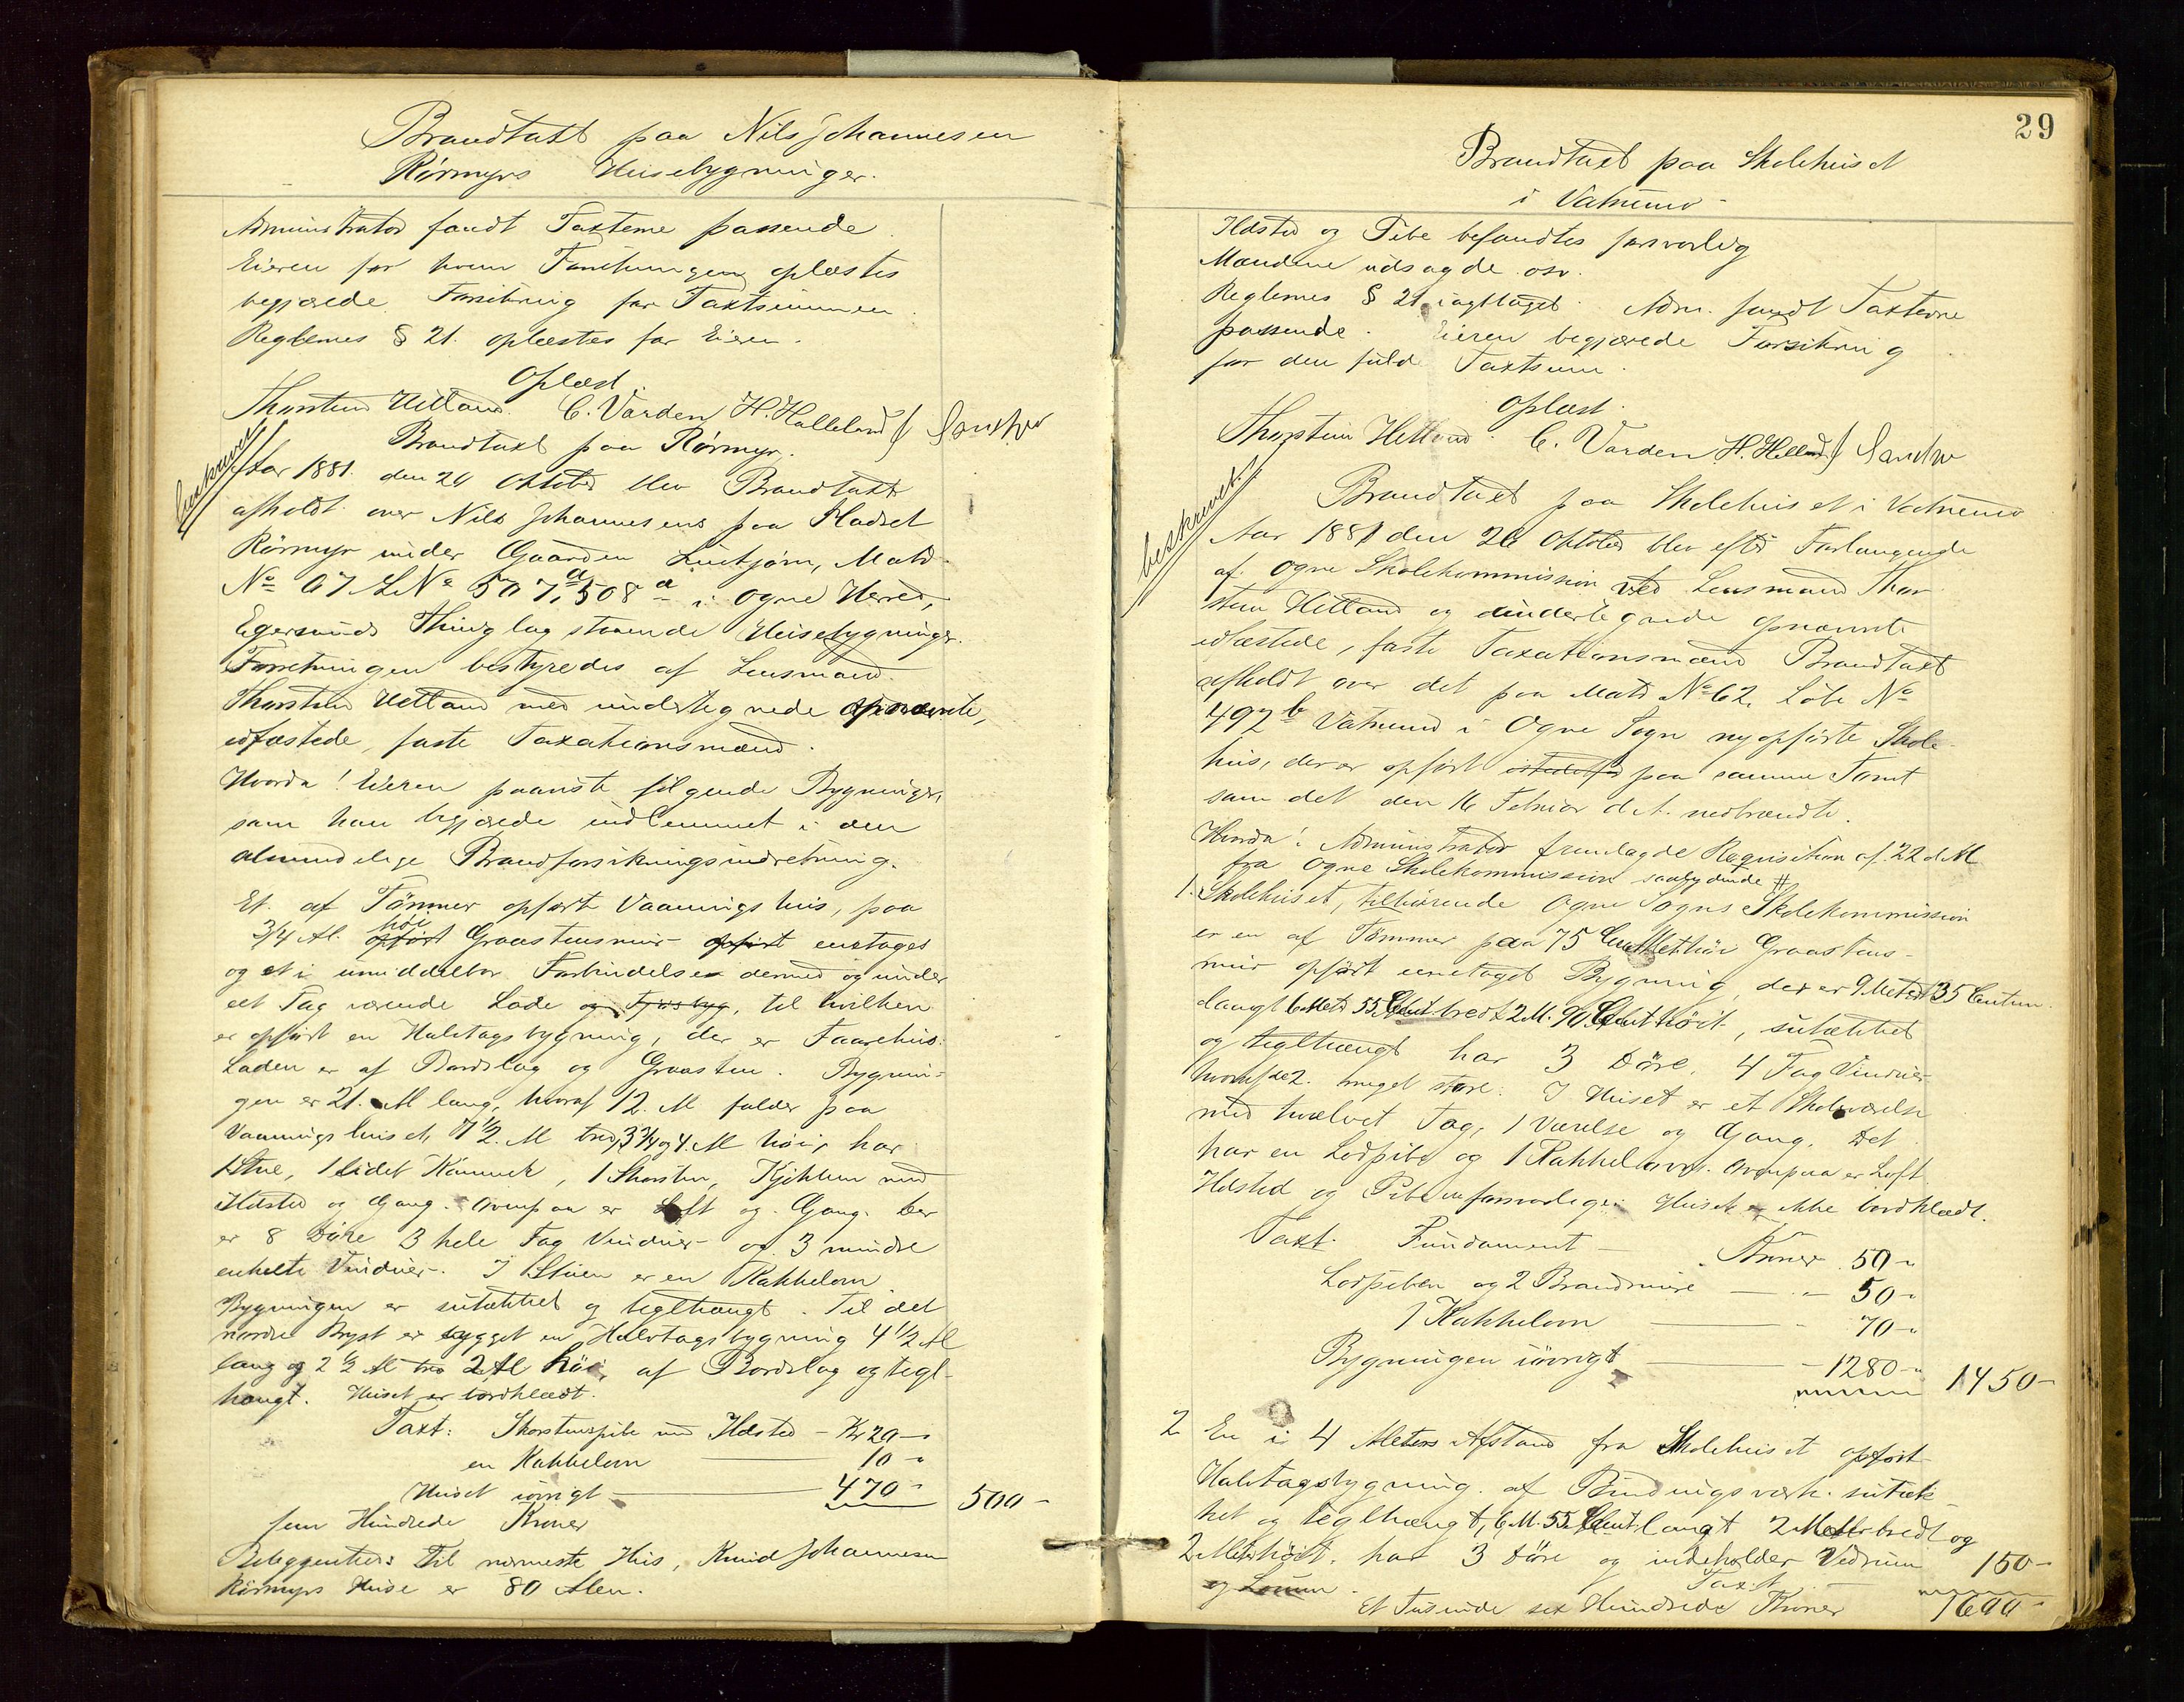 Brandtaxt paa Nils Johannesen
Rörmyrs Husebygninger.
Administrator fandt Taxterne passende.
Eieren for hvem Forretningen oplæstes
begjærede Forsikring for Taxtsummen.
Reglernes § 21. oplæstes for Eieren.
Oplæst.
Thorstein Hetland. C. Varden H. Halleland
Brandtaxt paa Rörmyr.
beskrevet
Aar 1881. den 26 Oktober blev Brandtaxt
afholdt over Nils Johannesens paa Pladset
Rörmyr under Gaarden Luetjørn, Matr.
No 67 L No 507a, 508a i Ogne Herred,
Egersunds Thinglag staaende Husebygninger.
Forretningen bestyredes af Lensmand
Thorstein Hetland med undertegnede opnævnte,
edfæstede, faste Taxationsmænd.
Hvorda! Eieren paaviste fölgende Bygninger,
som han begjærede indlemmet i den
almindelige Brandforsikringsindretning.
Et af Tömmer opfört Vaaningshus, paa
3/4 Al. höi Graastensmur opfört enetages
og et i umiddelbar Forbindelse dermed og under
eet Tag værende Lade og Fjøsbyg, til hvilken
er opfört en Halvtagsbygning, der er Faarehus.
Laden er af Bordslag og Graasten. Bygnin-
gen er 21. Al lang, hvoraf 12. Al falder paa
Vaaningshuset, 7 1/2. Al bred, 3 3/4 og 4. Al höi, har
1 Stue, 1 lidet Kammer, 1 Skorsten, Kjökken med
Ildsted og Gang. Ovenpaa er Loft og Gang. Der
er 8 Döre 3 hele Fag Vinduer og 3 mindre
enkelte Vinduer. I Stuen er en Kakkelovn
Bygningen er sutækket og teglhængt. Til det
nordre Bryst er bygget en Halvtagsbygning 4 1/2 Al
lang og 2 1/2 Al bred 2 Al höi, af Bordslag og tegl-
hængt. Huset er bordklædt.
Taxt: Skorstenspibe med Ildsted - Kr 20 -
en Kakkelovn 10 -
Huset iövrigt 470 - 500 -
fem Hundrede Kroner
Beliggenhed: Til nærmeste Hus, Knud Johannesen
Rörmyrs Huse er 80 Alen.
29
Brandtaxt paa Skolehuset
i Vatnemo
Ildsted og Pibe befandtes forsvarlig
Mændene udsagde osv.
Reglernes § 21 iagttaget. Adm. fandt Taxterne
passende. Eieren begjærede Forsikring
for den fulde Taxtsum.
Oplæst.
Thorstein Hetland. C. Varden H. Helland
beskrevet.
Brandtaxt paa Skolehuset i Vatnemo
Aar 1881 den 26 Oktober blev efter Forlangende
af Ogne Skolekommission ved Lensmand Thor-
stein Hetland og undertegnede opnævnte
edfæstede, faste Taxationsmænd Brandtaxt
afholdt over det paa Matr No 62, Löbe No
497b Vatnemo i Ogne Sogn nyopförte Skole-
hus, der er opfört istedetfor paa samme Tomt
som det den 16 Februar d. A. nedbrændte.
Hvorda! Administrator fremlagde Requisition af 22 d. M
fra Ogne Skolekommission saalydende #
1. Skolehuset, tilhörende Ogne Sogns Skolekommission
er en af Tömmer paa 75 Centimet. höi Graastens-
mur opfört enetaget Bygning, der er 9 Meter 35 Centim.
langt 6 Met. 55 Cent. bredt 2 M. 90 Cent. höit, sutækket
og teglhængt har 3 Döre, 4 Fag Vinduer
hvoraf de 2. meget store. I Huset er et Skoleværelse
med hvælvet Tag, 1 Værelse og Gang. Det
har en Lodpibe og 1 Kakkelovn. Ovenpaa er Loft
Ildsted og Pibe er forsvarlige. Huset er ikke bordklædt.
Taxt. Fundament - Kroner 50 -
Lodpiben og 2 Brandmure 50 -
1 Kakkelovn 70 -
Bygningen iövrigt 1280 - 1450 -
2 En i 4 Meters Afstand fra Skolehuset opfört
Halvtagsbygning af Bindingsværk. sutæk-
ket og teglhængt, 6 M. 55 Cent. langt 2 Meter bredt og
2 Meter höit. har 3 Döre og indeholder Vedrum 150 -
og Taxt
Et Tusinde sex Hundrede Kroner 1600 -